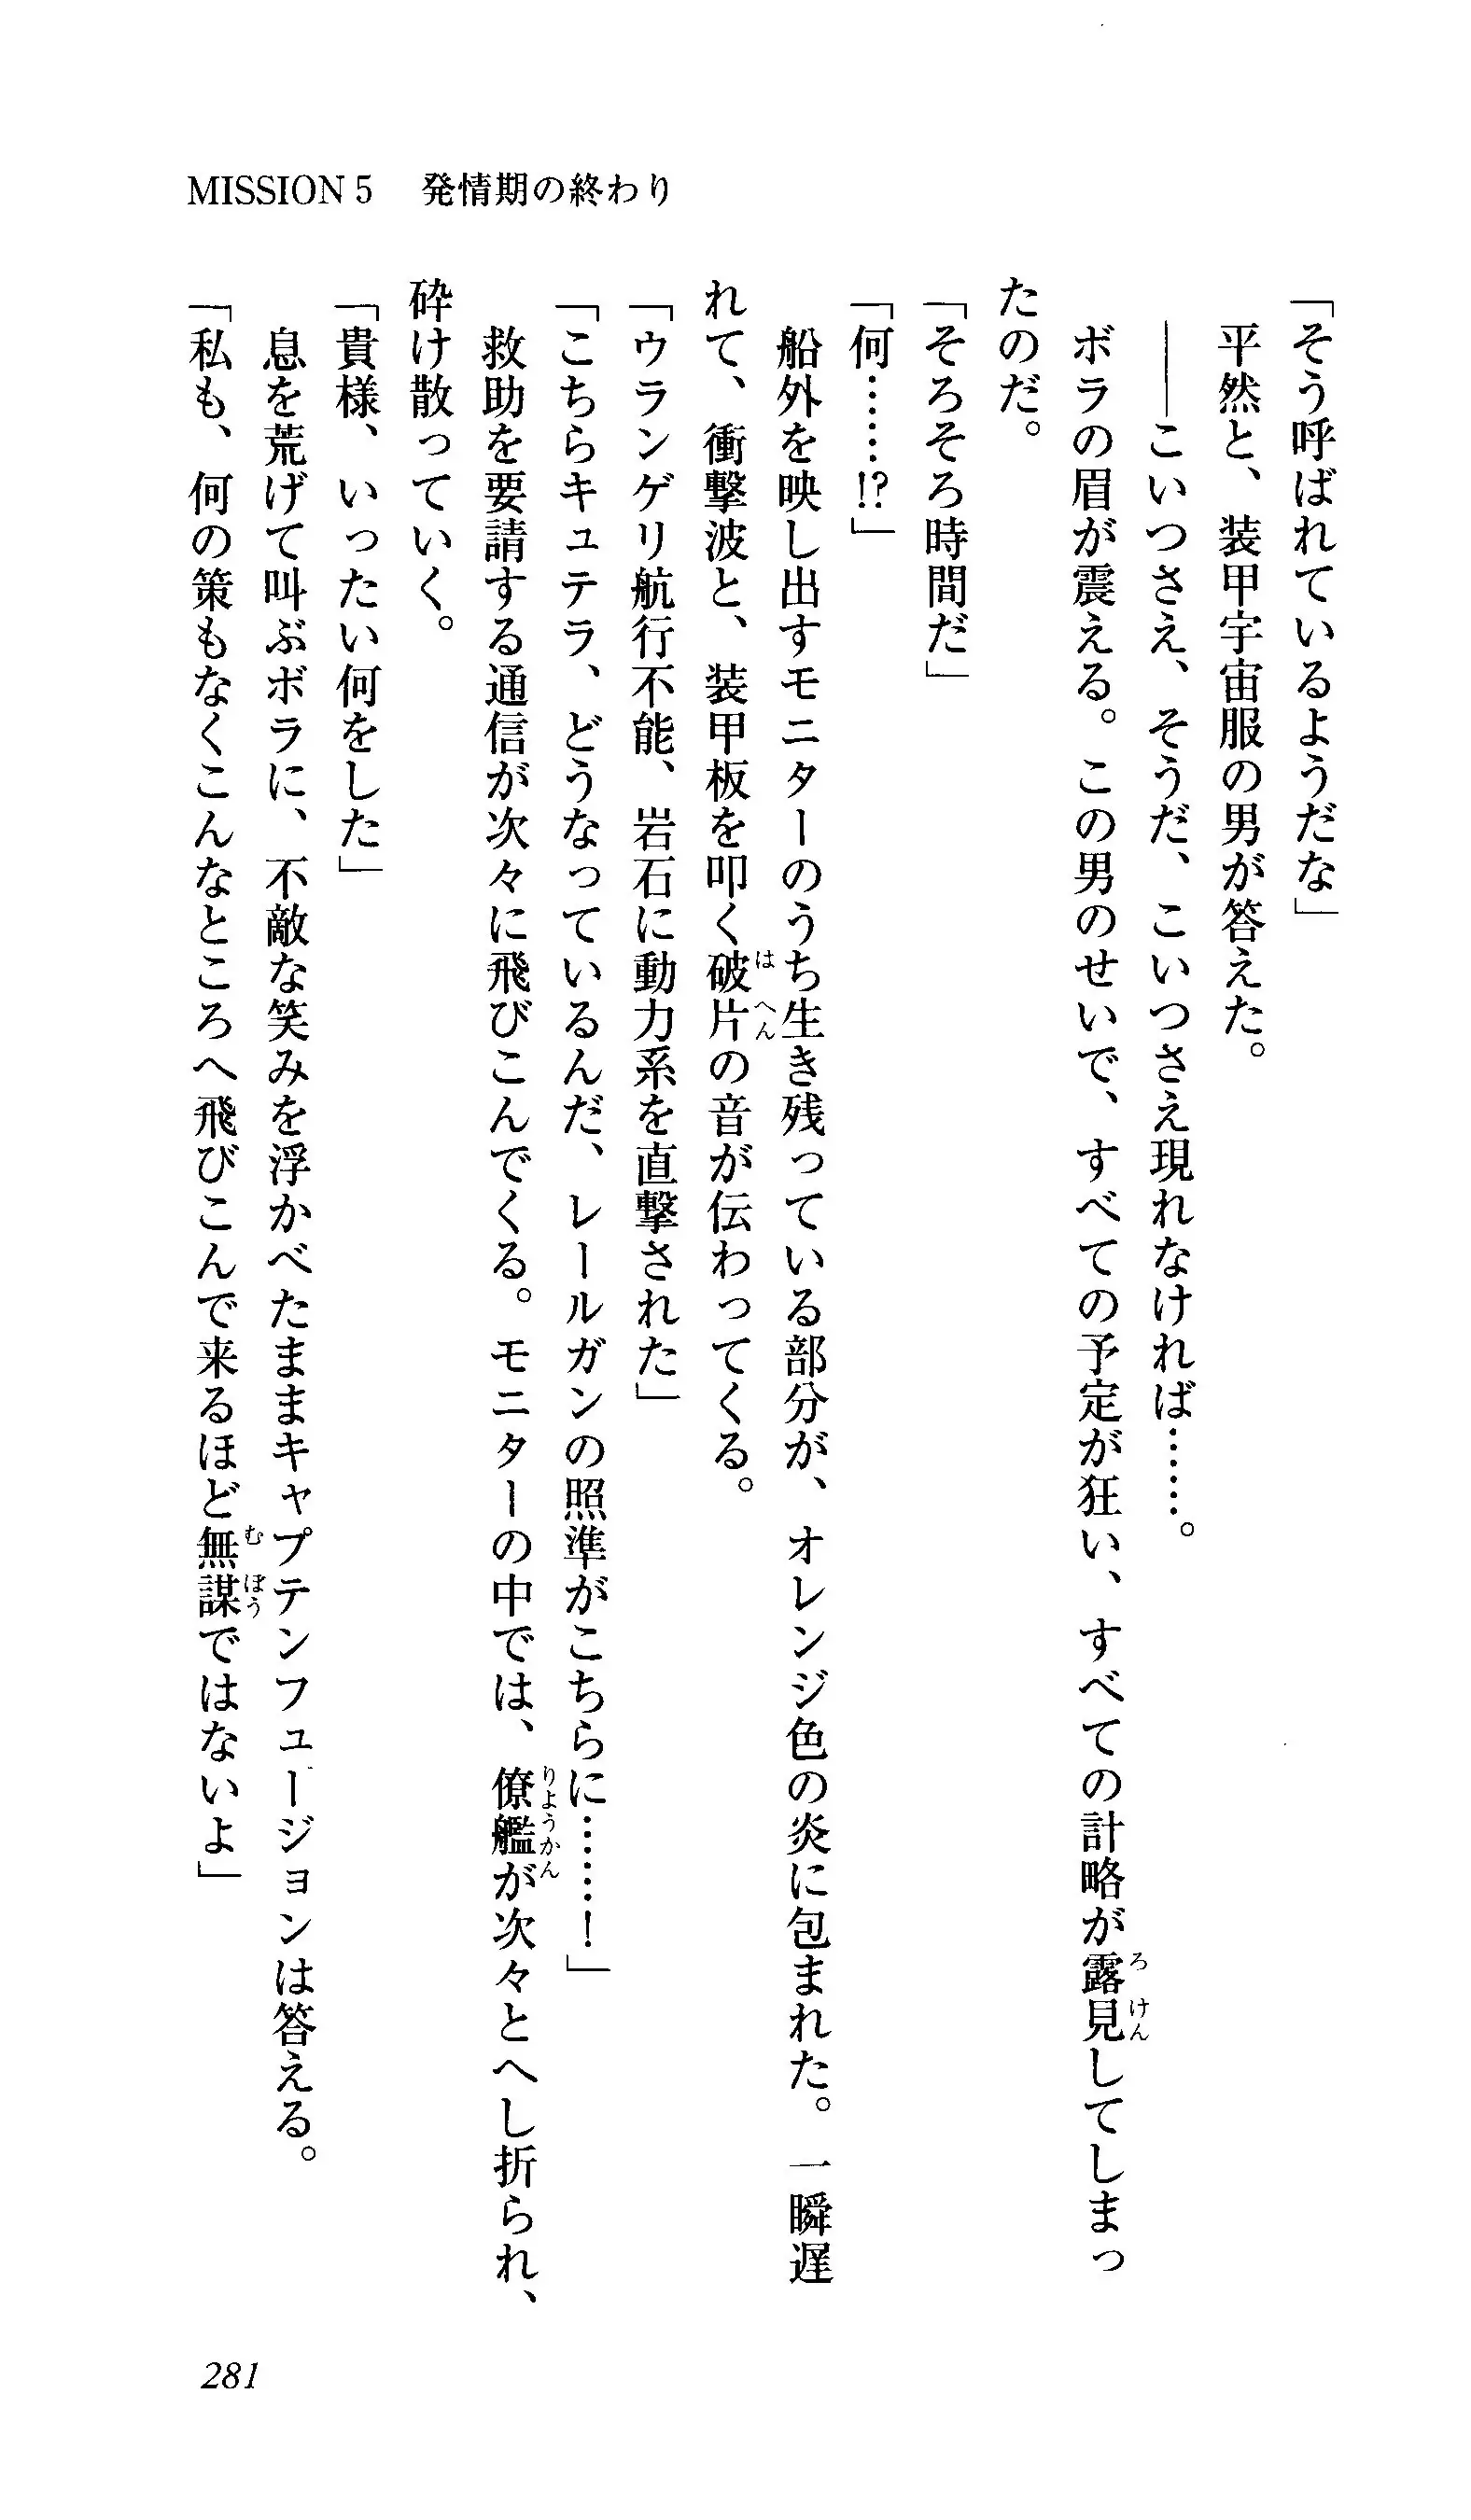 MISSION 5　発情期の終わり
「そう呼ばれているようだな」
　平然と、装甲宇宙服の男が答えた。
　――こいつさえ、そうだ、こいつさえ現れなければ……。
　ボラの眉が震える。この男のせいで、すべての予定が狂い、すべての計略が露見してしまっ
たのだ。
「そろそろ時間だ」
「何……!?」
　船外を映し出すモニターのうち生き残っている部分が、オレンジ色の炎に包まれた。一瞬遅
れて、衝撃波と、装甲板を叩く破片の音が伝わってくる。
「ウランゲリ航行不能、岩石に動力系を直撃された」
「こちらキュテラ、どうなっているんだ、レールガンの照準がこちらに……！」
　救助を要請する通信が次々に飛びこんでくる。モニターの中では、僚艦が次々とへし折られ、
砕け散っていく。
「貴様、いったい何をした」
　息を荒げて叫ぶボラに、不敵な笑みを浮かべたままキャプテンフュージョンは答える。
「私も、何の策もなくこんなところへ飛びこんで来るほど無謀ではないよ」
281